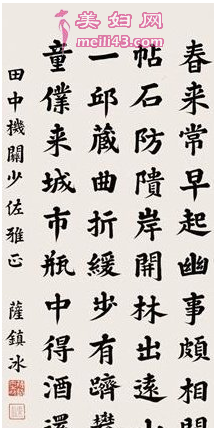 美妇网
meili43.com
春来常早起幽事頗相關
帖石防隤岸開林出遠山
一邱藏曲折緩步有躋攀
童僕来城市瓶中得酒還
田中機關少佐雅正 薩鎮冰